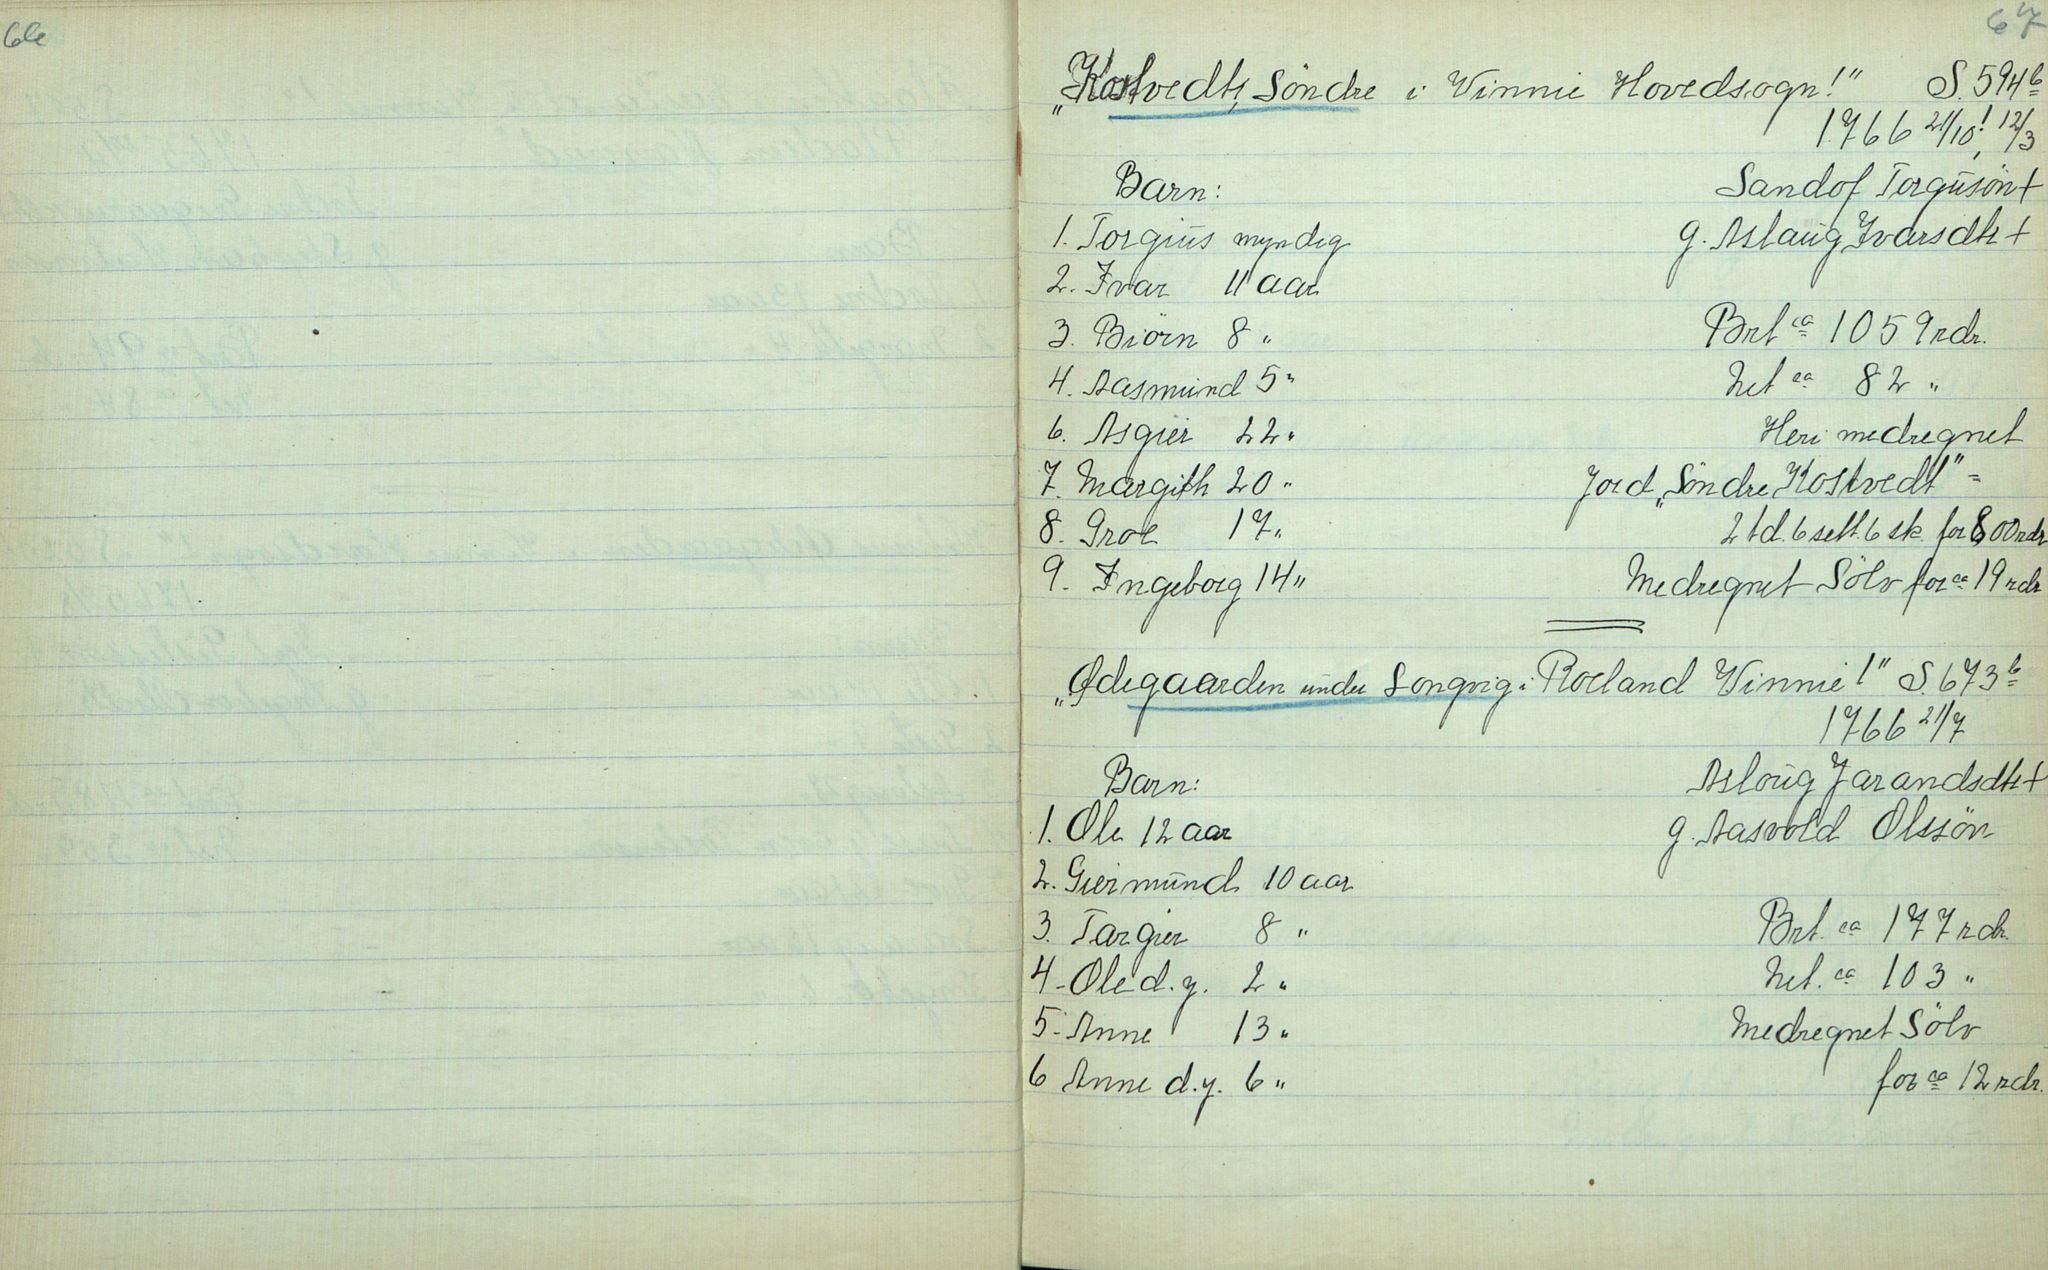 66
67
„Kostvedt, Söndre i Vinnie Hovedsogn!" S. 594b
1766 21/10! 12/3
Barn:
Sandof Torgusön +
1. Torgius myndig
g. Aslaug Ivarsdtr +
2. Ivar 11 aar
3. Biörn 8 "
Brt ca 1059 rdr.
4. Aasmund 5 "
Net ca 82 "
6. Asgier 22 "
Heri medregnet
7. Margith 20 "
Jord „Söndre Kostvedt" =
8. Groe 17 "
2 td. 6 sett. 6 sk. for 800 rdr
9. Ingeborg 14 "
Medregnet Sölv for ca 19 rdr
„Ødegaarden under Songvig i Roeland Vinnie!" S. 673b
1766 21/7
Barn:
Asloug Jarandsdtr +
1. Ole 12 aar
g. Aasvold Olssön
2. Giermund 10 aar
3. Targier 8 "
Brt. ca 177 rdr.
4. Ole d.y. 2 "
Net. ca 103 "
5. Anne 13 "
Medregnet Sölv
6 Anne d.y. 6 "
for ca 12 rdr.